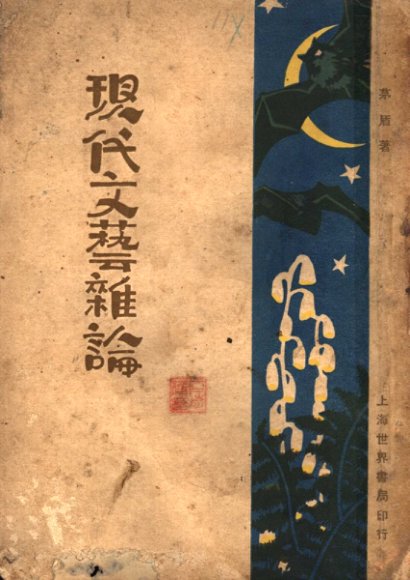 茅盾著
現代文藝雜論
上海世界書局印行